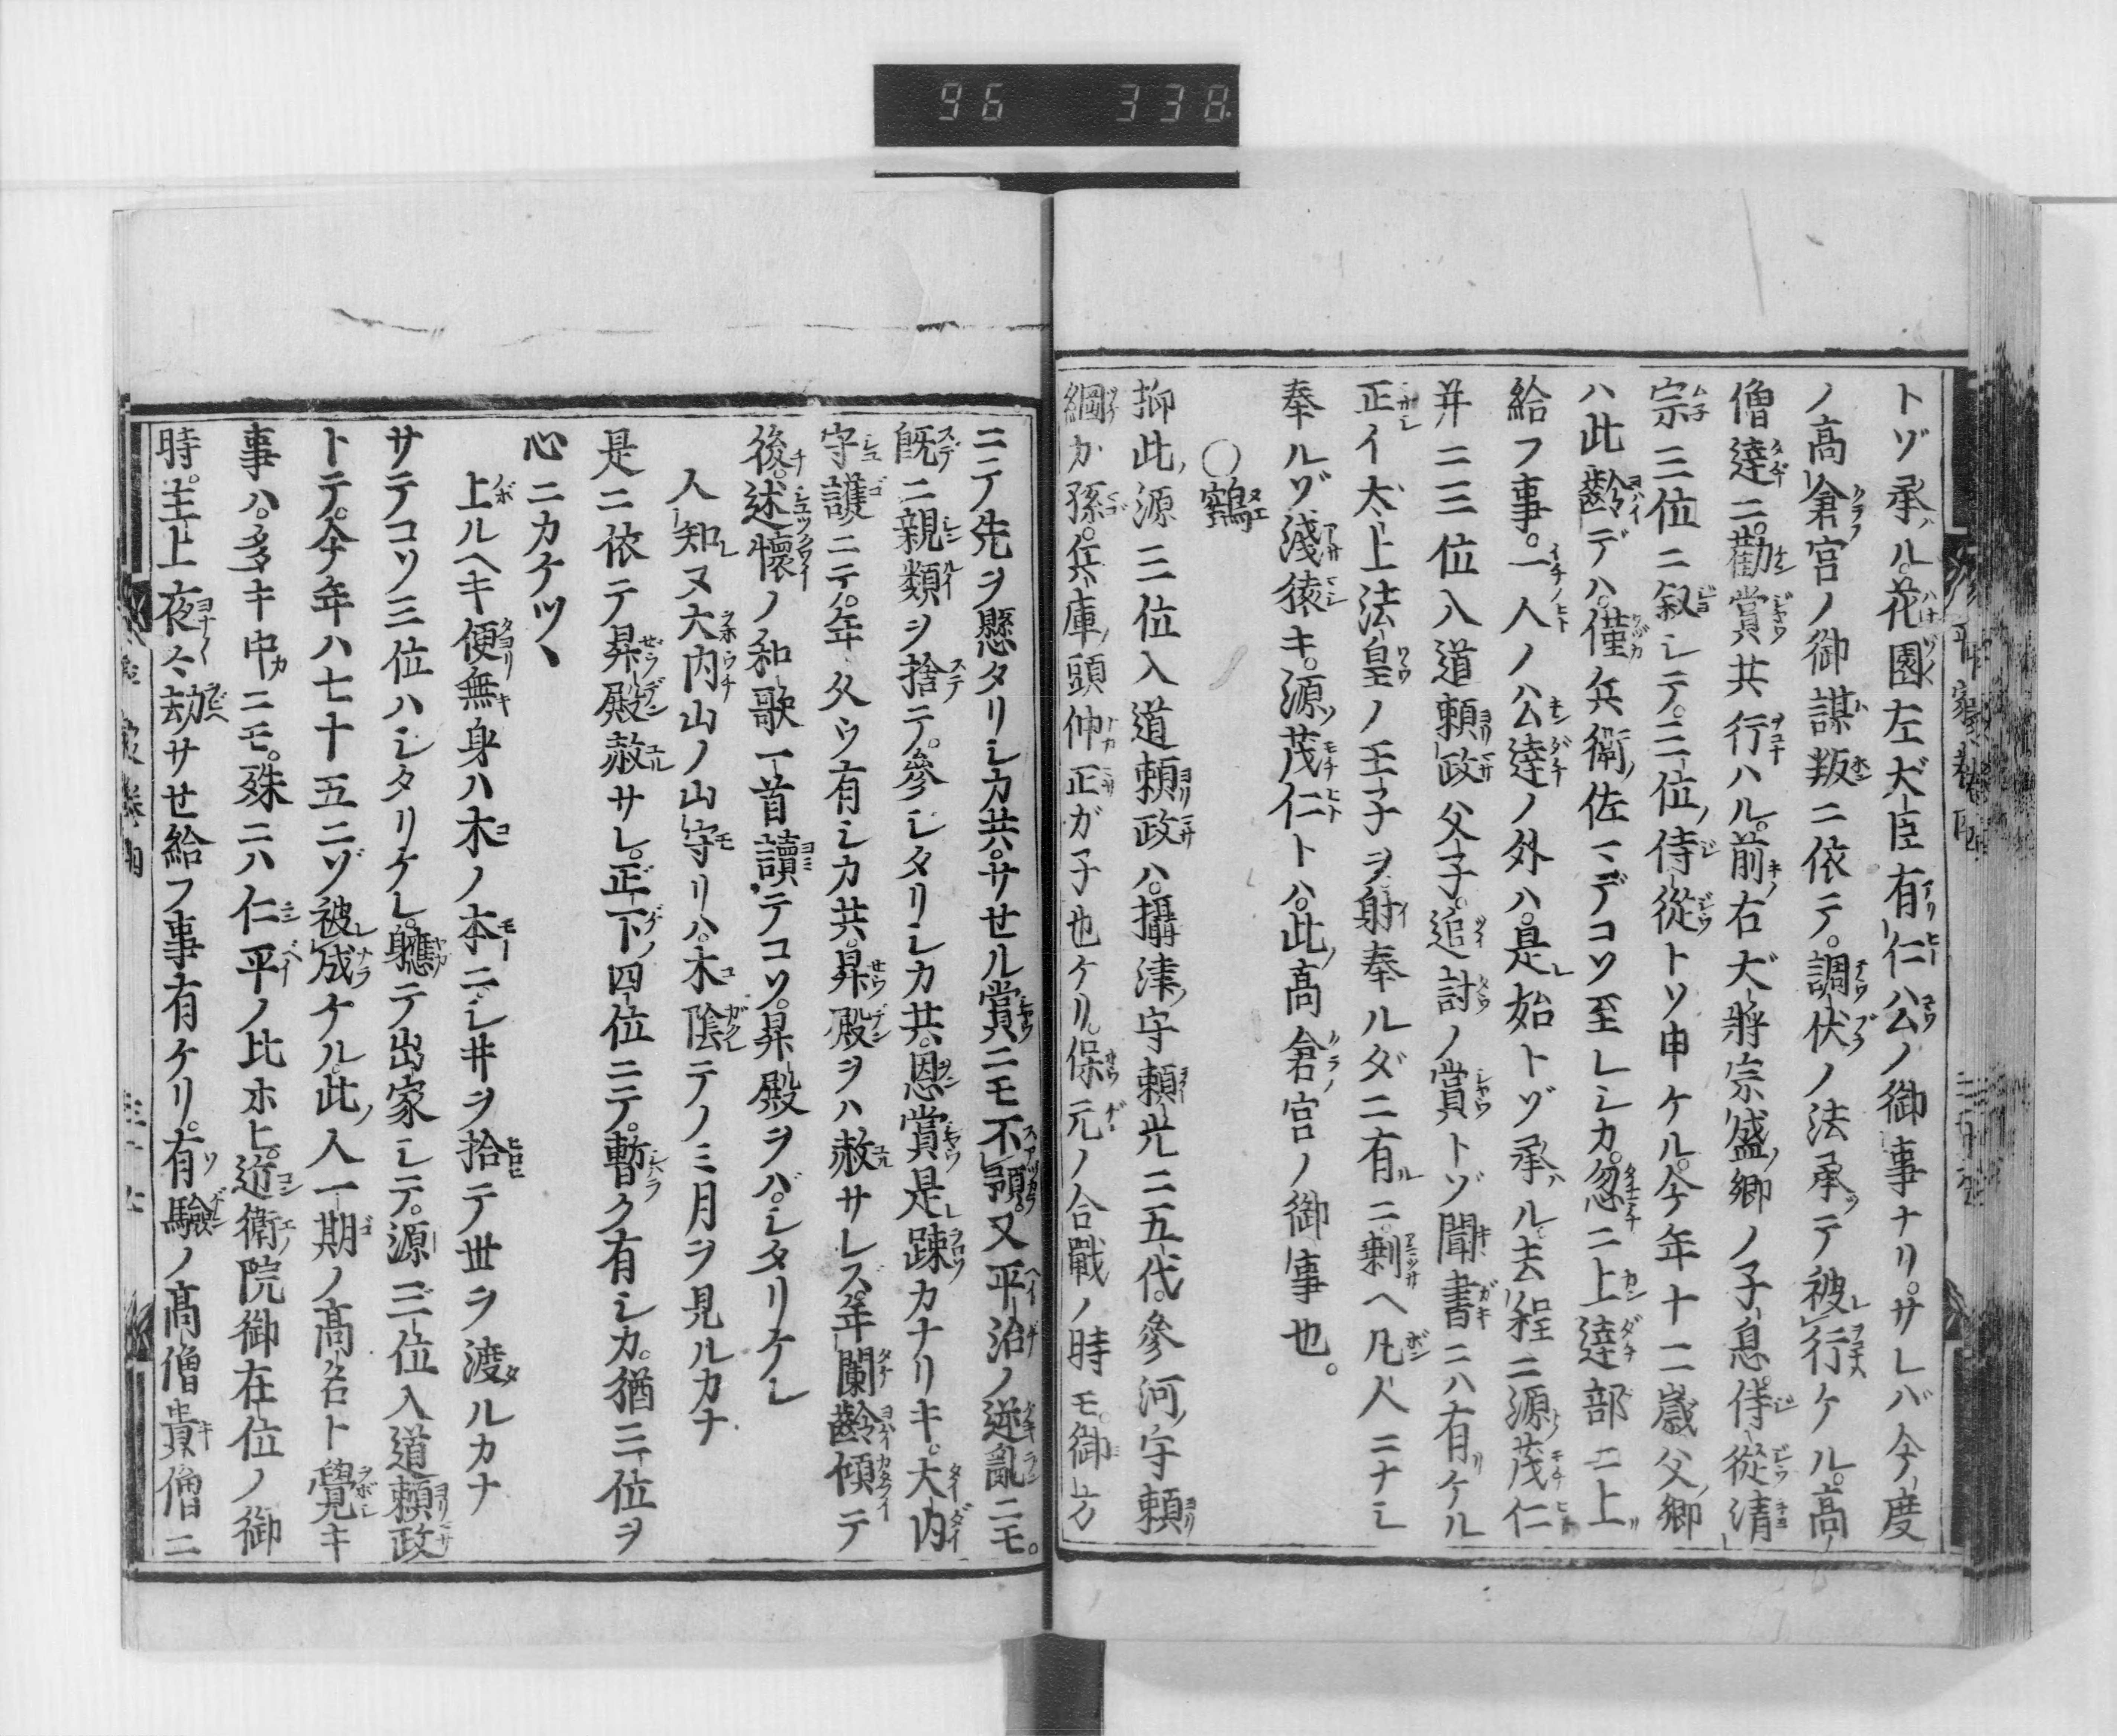 96 338
トゾ承ル。花園左大臣有仁公ノ御事ナリ。サレバ今度
ノ高倉宮ノ御謀叛ニ依テ。調伏ノ法承テ被行ケル。高
僧達ニ。勸賞共行ハル。前右大將宗盛卿ノ子息。侍從清
宗三位ニ叙シテ。三位侍從トソ申ケル。今年十二歳父卿
ハ此齡デハ。僅兵衞佐ニデコソ至シシカ。忽ニ上達部ニ上
給フ事。一人ノ公達ノ外ハ。是始トゾ承ル。去程ニ源茂仁
并ニ三位入道頼政父子。追討ノ賞トゾ聞書ニハ有ケル
正イ太上法皇ノ王子ヲ射奉ルダニ有ニ。剰ヘ凡人ニナシ
奉ルゾ淺猿キ。源茂仁トハ。此高倉宮ノ御事也。
〇鵺
抑此源三位入道頼政ハ。攝津守頼光ニ五代。參河守頼
綱カ孫。兵庫頭仲正ガ子也ケリ。保元ノ合戰ノ時モ。御方
ニテ先ヲ懸タリシカ共。サセル賞ニモ不預。又平治ノ逆亂ニモ。
既ニ親類ヲ捨テ。參シタリシカ共。恩賞是踈カナリキ。大内
守護ニテ。年久ウ有シカ共。昇殿ヲハ赦サレズ。年闌齡傾テ
後。述懷ノ和歌一首讀テコソ。昇殿ヲバシタリケレ
人知レヌ大内山ノ山守リハ。木陰テノミ月ヲ見ルカナ
是ニ依テ昇殿赦サレ。正下四位ニテ。暫ク有シカ。猶三位ヲ
心ニカケツヽ
上ルヘキ便無身ハ木ノ本ニシ井ヲ拾テ世ヲ渡ルカナ
サテコソ三位ハシタリケレ。軈テ出家シテ。源三位入道頼政
トテ。今年ハ七十五ニゾ被成ケル。此人一期ノ高名ト覺キ
事ハ。多キ中ニモ。殊ニハ仁平ノ比ホヒ。近衛院御在位ノ御
時。主上夜々劫サセ給フ事有ケリ。有驗ノ高僧貴僧ニ